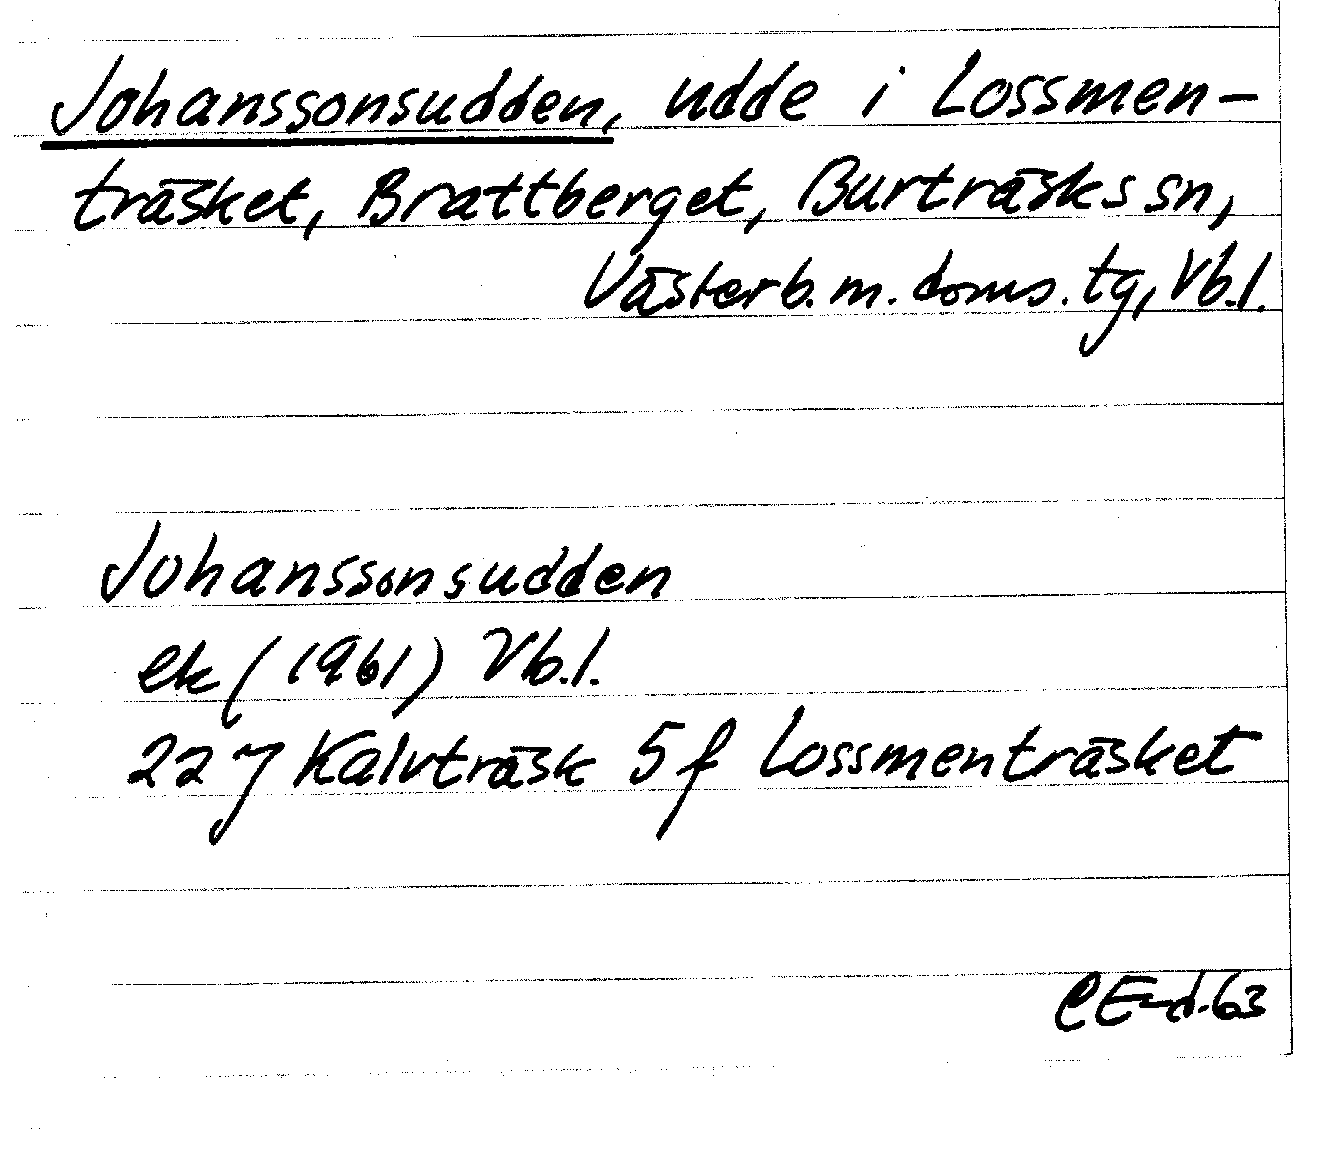 Johanssonsudden, udde i Lossmen-
träsket, Brattberget, Burträsks sn,
Västerb. m. doms. tg, Vb. l.
Johanssonsudden
ek (1961) Vb. l.
22 J Kalvträsk 5 f Lossmenträsket
CE-d. 63